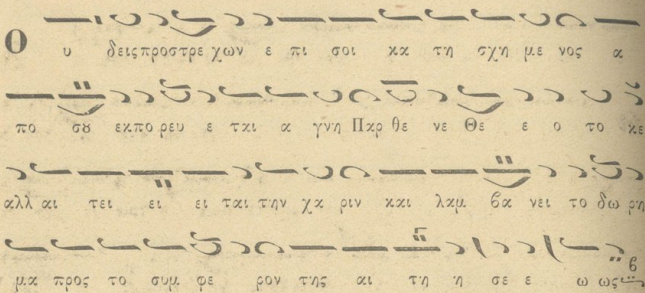 Ο υ δεις προστρε χων ε πι σοι κα τη σχη με νος α
πο σȣ εκπο ρευ ε ται α γνη Παρ θε νε Θε ε ο το κε
αλλ αι τει ει ει ται την χα ριν και λαμ βα νει το δω ρη
μα προς το συμ φε ρον της αι τη η σε ε ω ως β